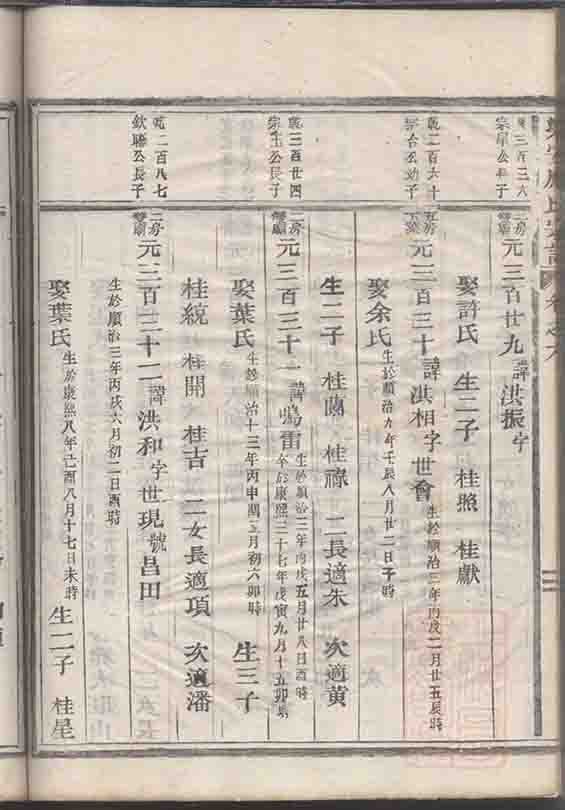 乾三百三六
二房
元三百廿九諱洪振字
娶許氏 生二子 桂照 桂獻
乾二百六十
宗台公幼子
五房
元三百三十諱洪相字世會生於順治三年丙戌二月廿五辰時
娶余氏生於順治九年壬辰八月廿二日子時
生二子 桂蘭 桂祿 二長適朱 次適黄
乾三百廿四
宗生公長子
二房
雙廟
元三百三十一諱鳴雷生於順治三年丙戌五月廿八日酉時
卒於康熙三十七年戊寅九月十五卯時
娶葉氏生於順治十三年丙申閏五月初六卯時 生三子
桂統 桂開 桂吉 二女長適項 次適潘
乾二百八七
欽聯公長子
二房
雙廟
元三百三十二諱洪和字世現號昌田
生於順治三年丙戌六月初二日酉時
娶葉氏生於康熙八年己酉八月十七日未時 生二子 桂星